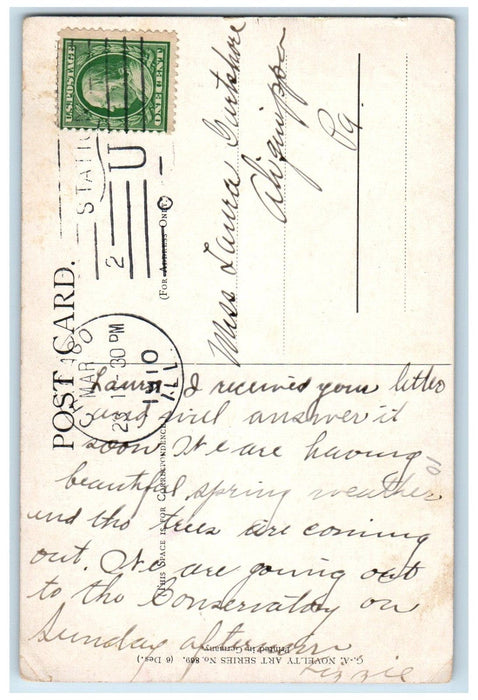 POST CARD.
U.S. POSTAGE
ONE CENT
STATION
U
2
MAR
28
1-30 PM
1910
ILL.
(FOR ADDRESS ONLY)
Miss Laura
Aliquippa
Pa.
THIS SPACE IS FOR CORRESPONDENCE
Laura, I received your letter
and will answer it
soon. We are having
beautiful spring weather
and the trees are coming
out. We are going out
to the Conservatory on
Sunday afternoon
Lizzie
10
G. A. NOVELTY ART SERIES No. 869 (6 Des.)
Printed in Germany